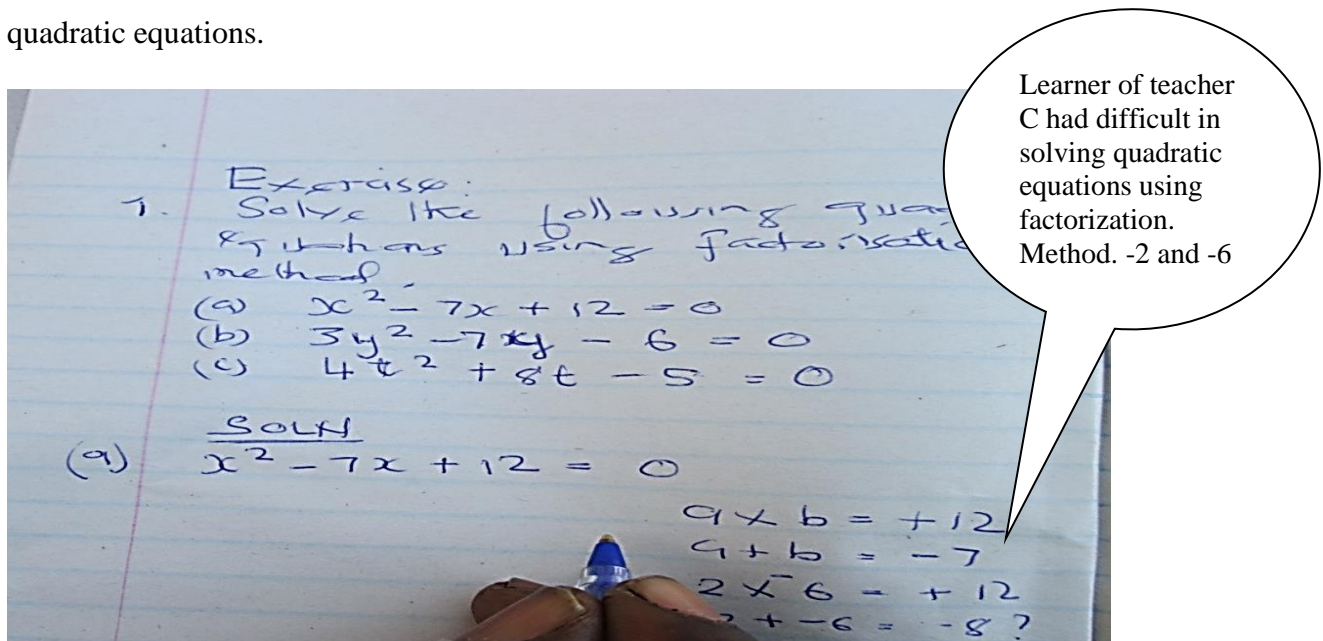 quadratic equations.
Learner of teacher
C had difficult in
solving quadratic
equations using
factorization.
Method. -2 and -6
Exercise:
1. Solve the following
equations using
method.
(a) x² - 7x + 12 = 0
(b) 3y² - 7y - 6 = 0
(c) 4t² + 8t - 5 = 0
SOLN
(a) x² - 7x + 12 = 0
a × b = +12
a + b = -7
2 × -6 = +12
+ -6 = -8?